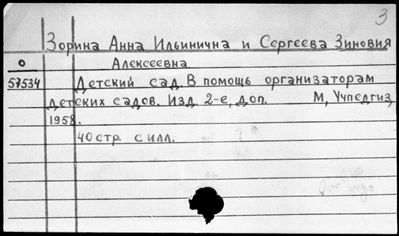 3
Зорина Анна Ильинична и Сергеева Зиновия
о Алексеевна
57534 Детский сад. В помощь организаторам
детских садов. Изд. 2-е, доп. М, Учпедгиз,
1958.
40 стр. с илл.